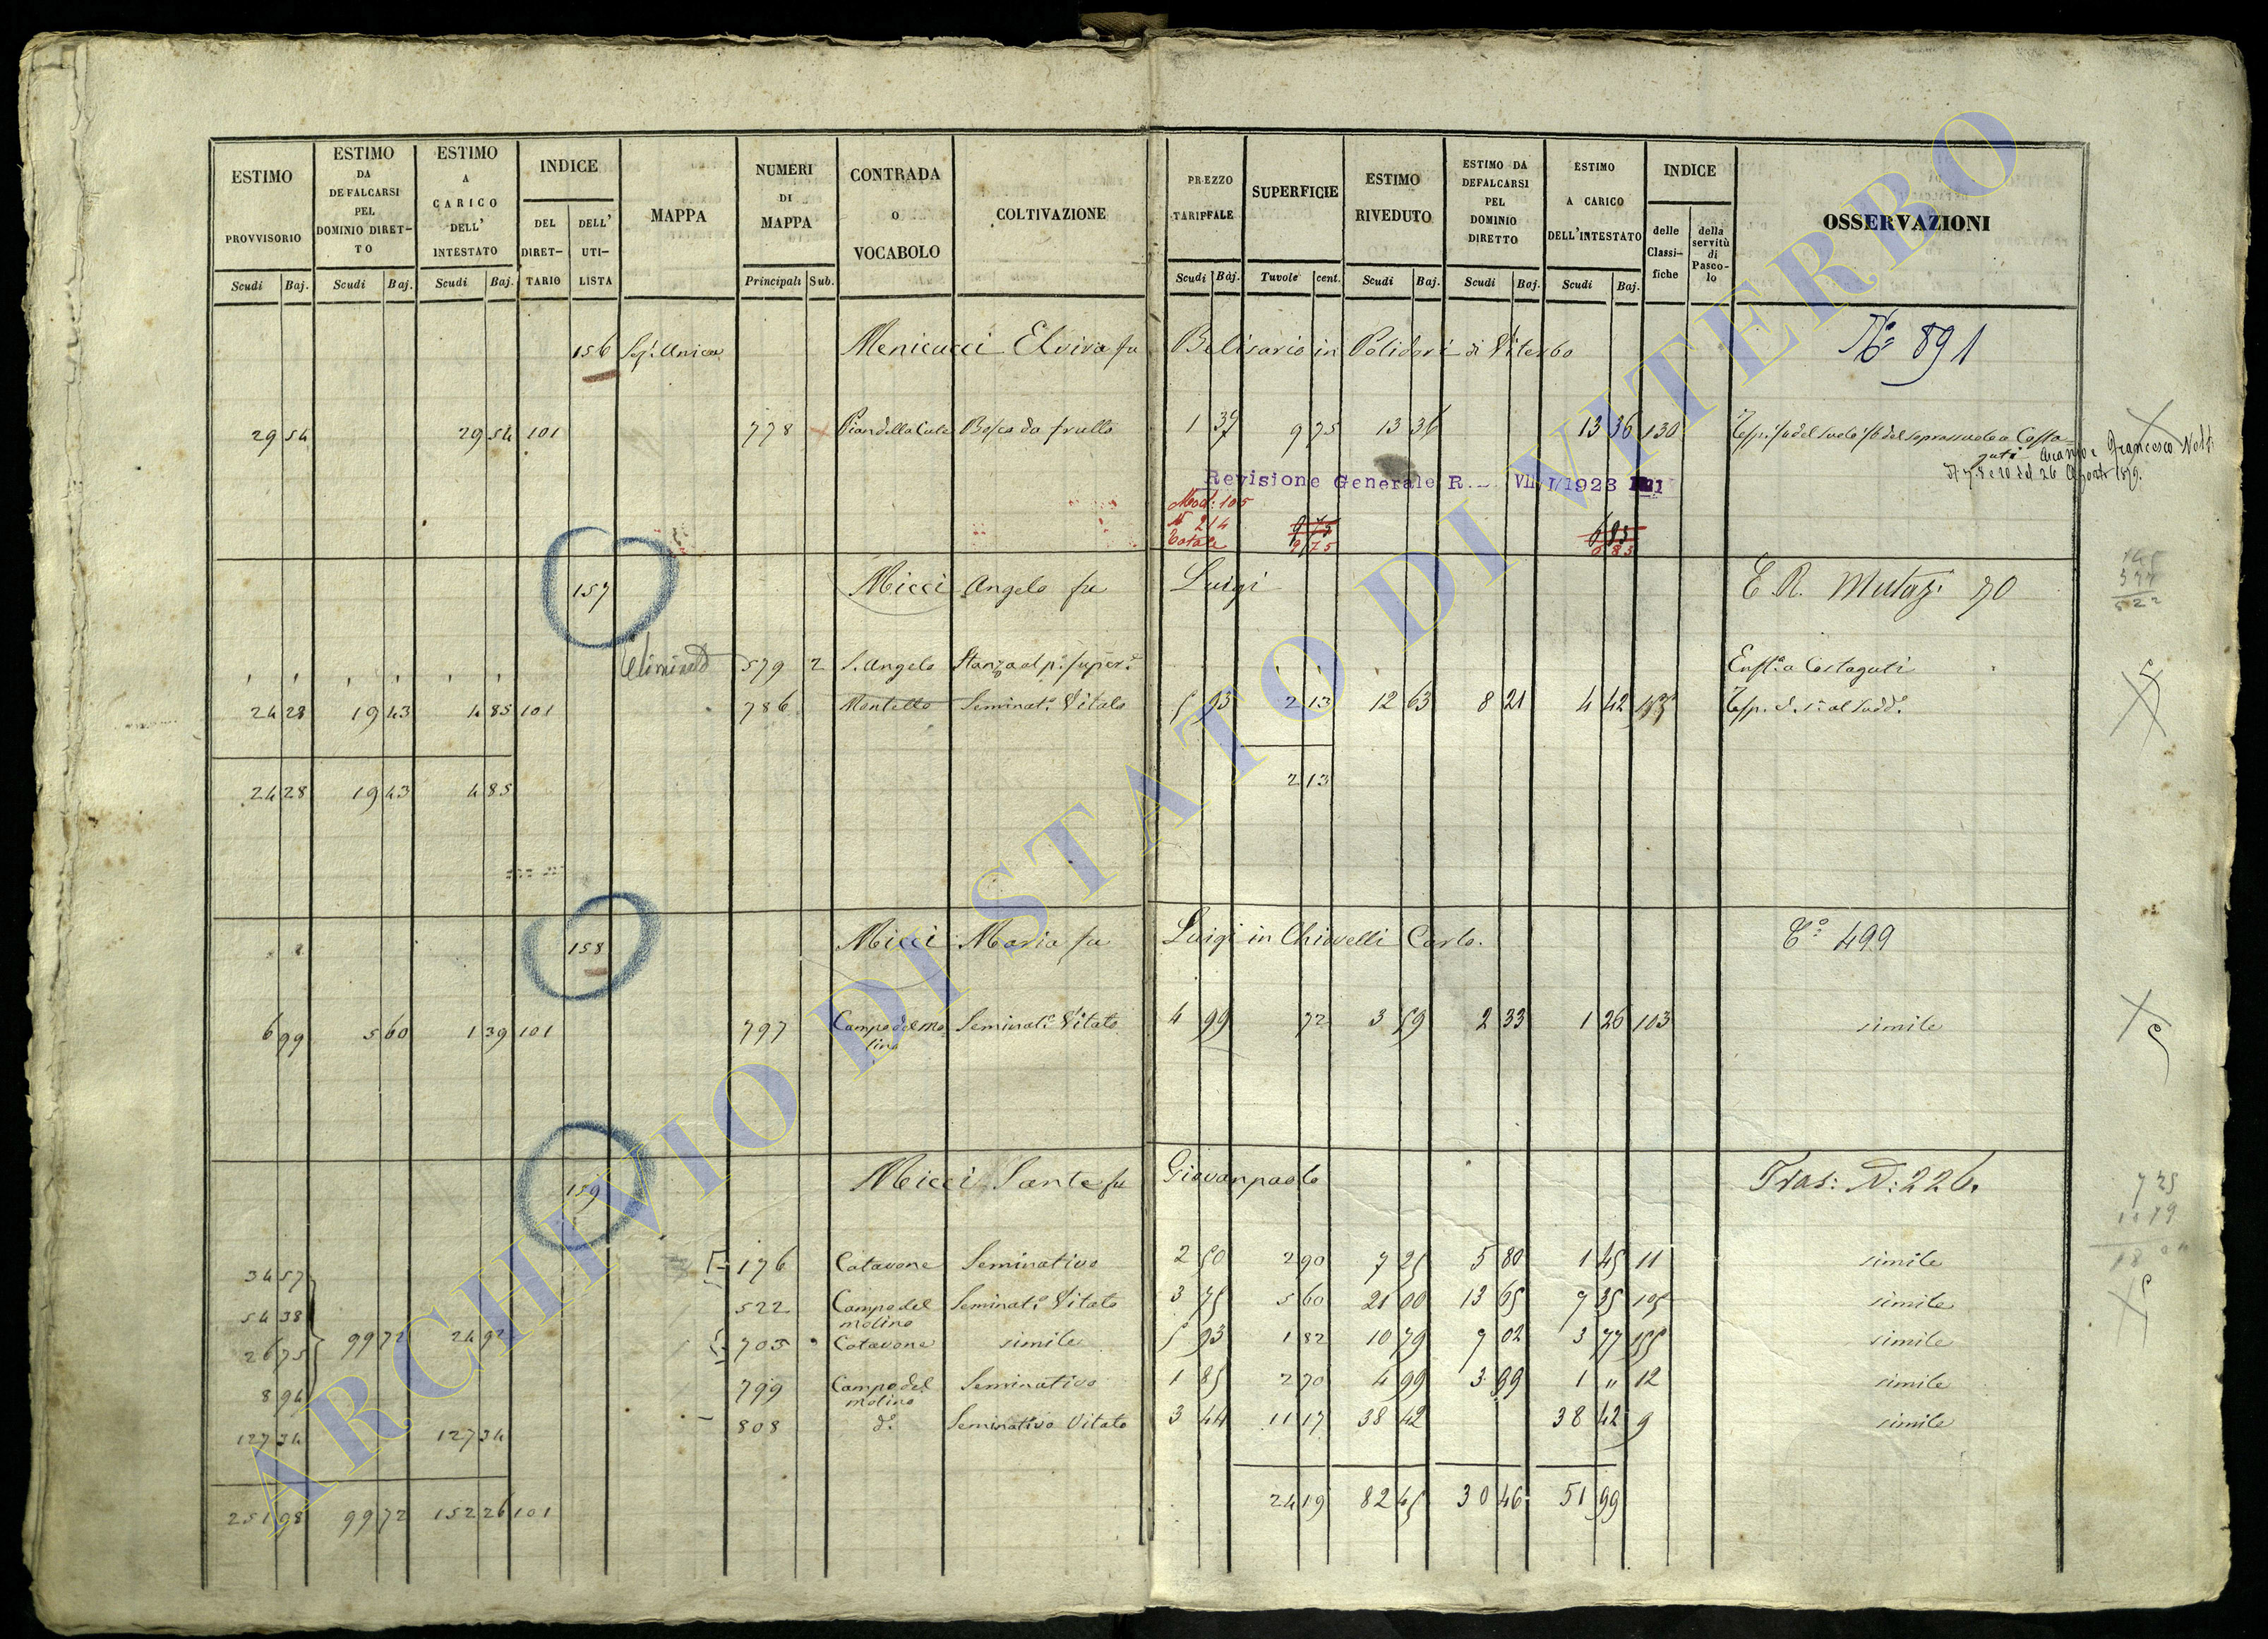 ESTIMO PROVVISORIO
ESTIMO DA DEFALCARSI PEL DOMINIO DIRETTO
ESTIMO A CARICO DELL' INTESTATO
INDICE
DEL DIRETTARIO
DELL' UTILISTA
MAPPA
NUMERI DI MAPPA
CONTRADA O VOCABOLO
COLTIVAZIONE
PREZZO TARIFFALE
SUPERFICIE
ESTIMO RIVEDUTO
ESTIMO DA DEFALCARSI PEL DOMINIO DIRETTO
ESTIMO A CARICO DELL'INTESTATO
INDICE
delle Classifiche
della servitù di Pascolo
OSSERVAZIONI
Scudi Baj. Scudi Baj. Scudi Baj. Principali Sub. Scudi Baj. Tavole cent. Scudi Baj. Scudi Baj. Scudi Baj.
156 Sez. Unica Menicucci Elvira fu Belisario in Polidori di Viterbo No 891
29 54 29 54 101 778 Bosco da frutto 1 37 9 75 13 36 13 36 130
Francesco
26 Agosto 1879.
Revisione Generale R. VII/1/1928
Mod: 105
N 214
Totale 9 75 6 83
9 75 6 83
157 Micci Angelo fu Luigi E R. Mutaz. 70
Eliminato 579 2 S. Angelo Stanza al p. super. Enft. a Costaguti
24 28 19 43 4 85 101 786 Montello Seminat. Vitato 5 93 2 13 12 63 8 21 4 42
2 13
24 28 19 43 4 85
158 Micci Maria fu Luigi in Chiovelli Carlo. 499
6 99 5 60 1 39 101 797 Campo del molino Seminat. Vitato 4 99 72 3 59 2 33 1 26 103 simile
159 Micci Sante fu Giovanpaolo Tras: N: 226.
34 57 176 Catavone Seminativo 2 50 2 90 7 25 5 80 1 45 11 simile
54 38 522 Campo del molino Seminat. Vitato 3 75 5 60 21 00 13 65 7 35 105 simile
26 75 99 72 24 92 705 Catavone simile 5 93 1 82 10 79 7 02 3 77 155 simile
8 94 799 Campo del molino Seminativo 1 85 2 70 4 99 3 99 1 " 12 simile
127 34 127 34 808 d.o Seminativo Vitato 3 44 11 17 38 42 38 42 9 simile
24 19 82 45 30 46 51 99
251 98 99 72 152 26 101
ARCHIVIO DI STATO DI VITERBO